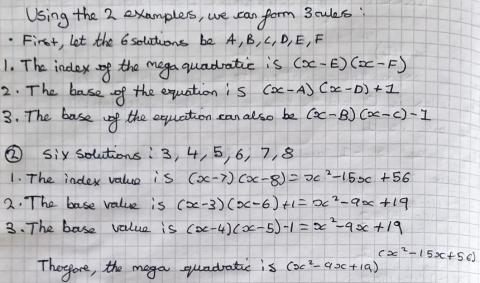 Using the 2 examples, we can form 3 rules :
• First, let the 6 solutions be A, B, C, D, E, F
1. The index of the mega quadratic is (x-E)(x-F)
2. The base of the equation is (x-A)(x-D)+1
3. The base of the equation can also be (x-B)(x-C)-1
② Six Solutions : 3, 4, 5, 6, 7, 8
1. The index value is (x-7)(x-8) = x²-15x +56
2. The base value is (x-3)(x-6)+1 = x²-9x +19
3. The base value is (x-4)(x-5)-1 = x²-9x +19
Therefore, the mega quadratic is (x²-9x+19)^(x²-15x+56)